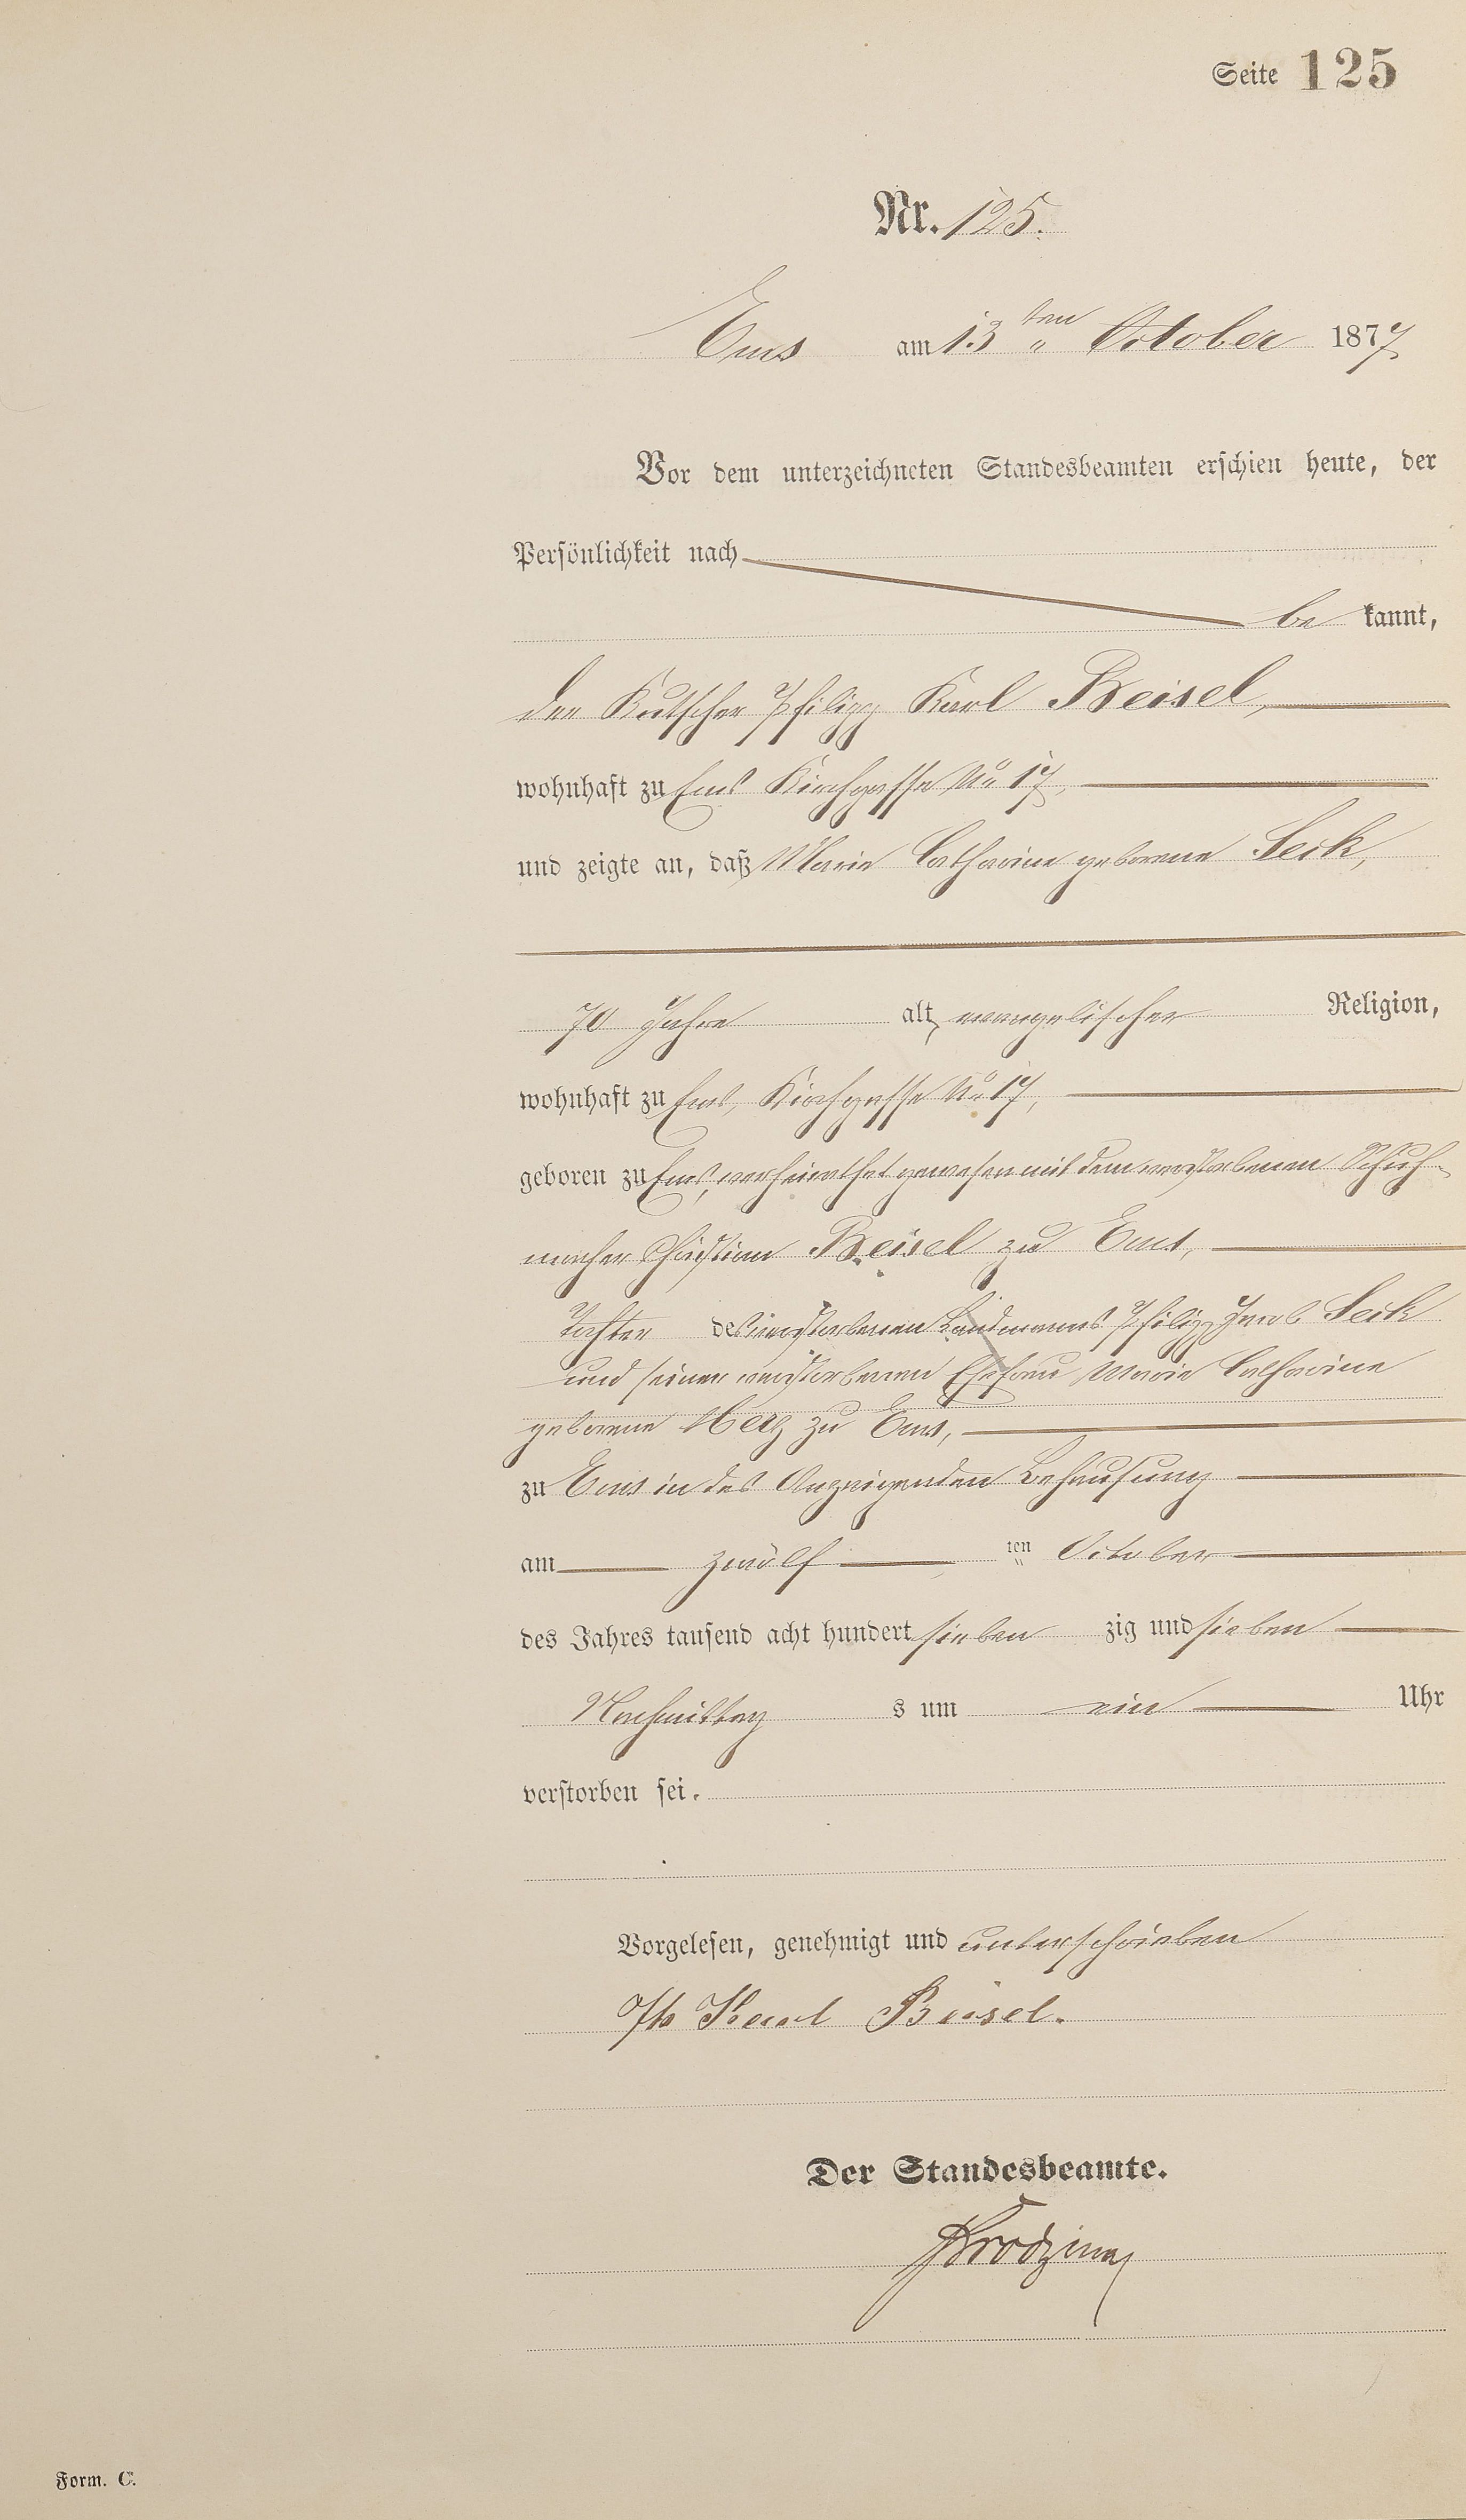 Seite 125
Nr. 125.
Ems am 13 ten October 1877
Vor dem unterzeichneten Standesbeamten erschien heute, der
Persönlichkeit nach
be kannt,
der Kutscher Philipp Karl Beisel,
wohnhaft zu Ems Kirchgasse No 17,
und zeigte an, daß Marie Catharine geborene Seck,
70 Jahre alt, evangelischer Religion,
wohnhaft zu Ems, Kirchgasse No 17,
geboren zu Ems, verheirathet gewesen mit dem verstorbenen Schuh-
macher Christian Beisel zu Ems,
Tochter des verstorbenen Landmanns Philipp Jacob Seck
und seiner verstorbenen Ehefrau Marie Catharine
geborene Merz zu Ems,
zu Ems in des Anzeigenden Behausung
am zwölf ten October
des Jahres tausend acht hundert sieben zig und sieben
Nachmittag s um ein Uhr
verstorben sei.
Vorgelesen, genehmigt und unterschrieben
Ph Karl Beisel.
Der Standesbeamte.
Form. C.